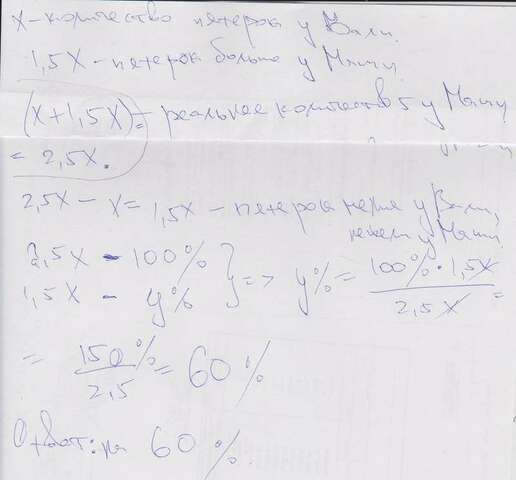 x - количество пятерок у Вали.
1,5x - пятерок больше у Маши.
(x + 1,5x) = - реальное количество 5 у Маши
= 2,5x.
2,5x - x = 1,5x - пятерок меньше у Вали,
нежели у Маши.
2,5x - 100%
1,5x - y%
} => y% = 100% · 1,5x / 2,5x =
= 150% / 2,5 = 60%
Ответ: на 60%.